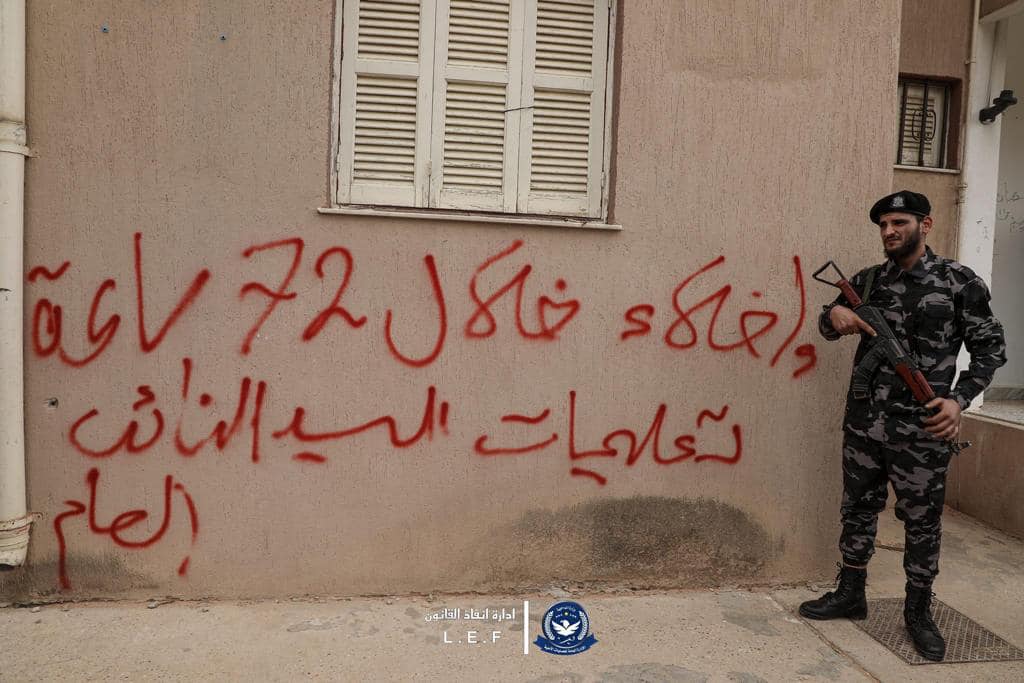 وإخلاء خلال 72 ساعة
تعليمات السيد النائب
العام
ادارة انفاذ القانون
L.E.F